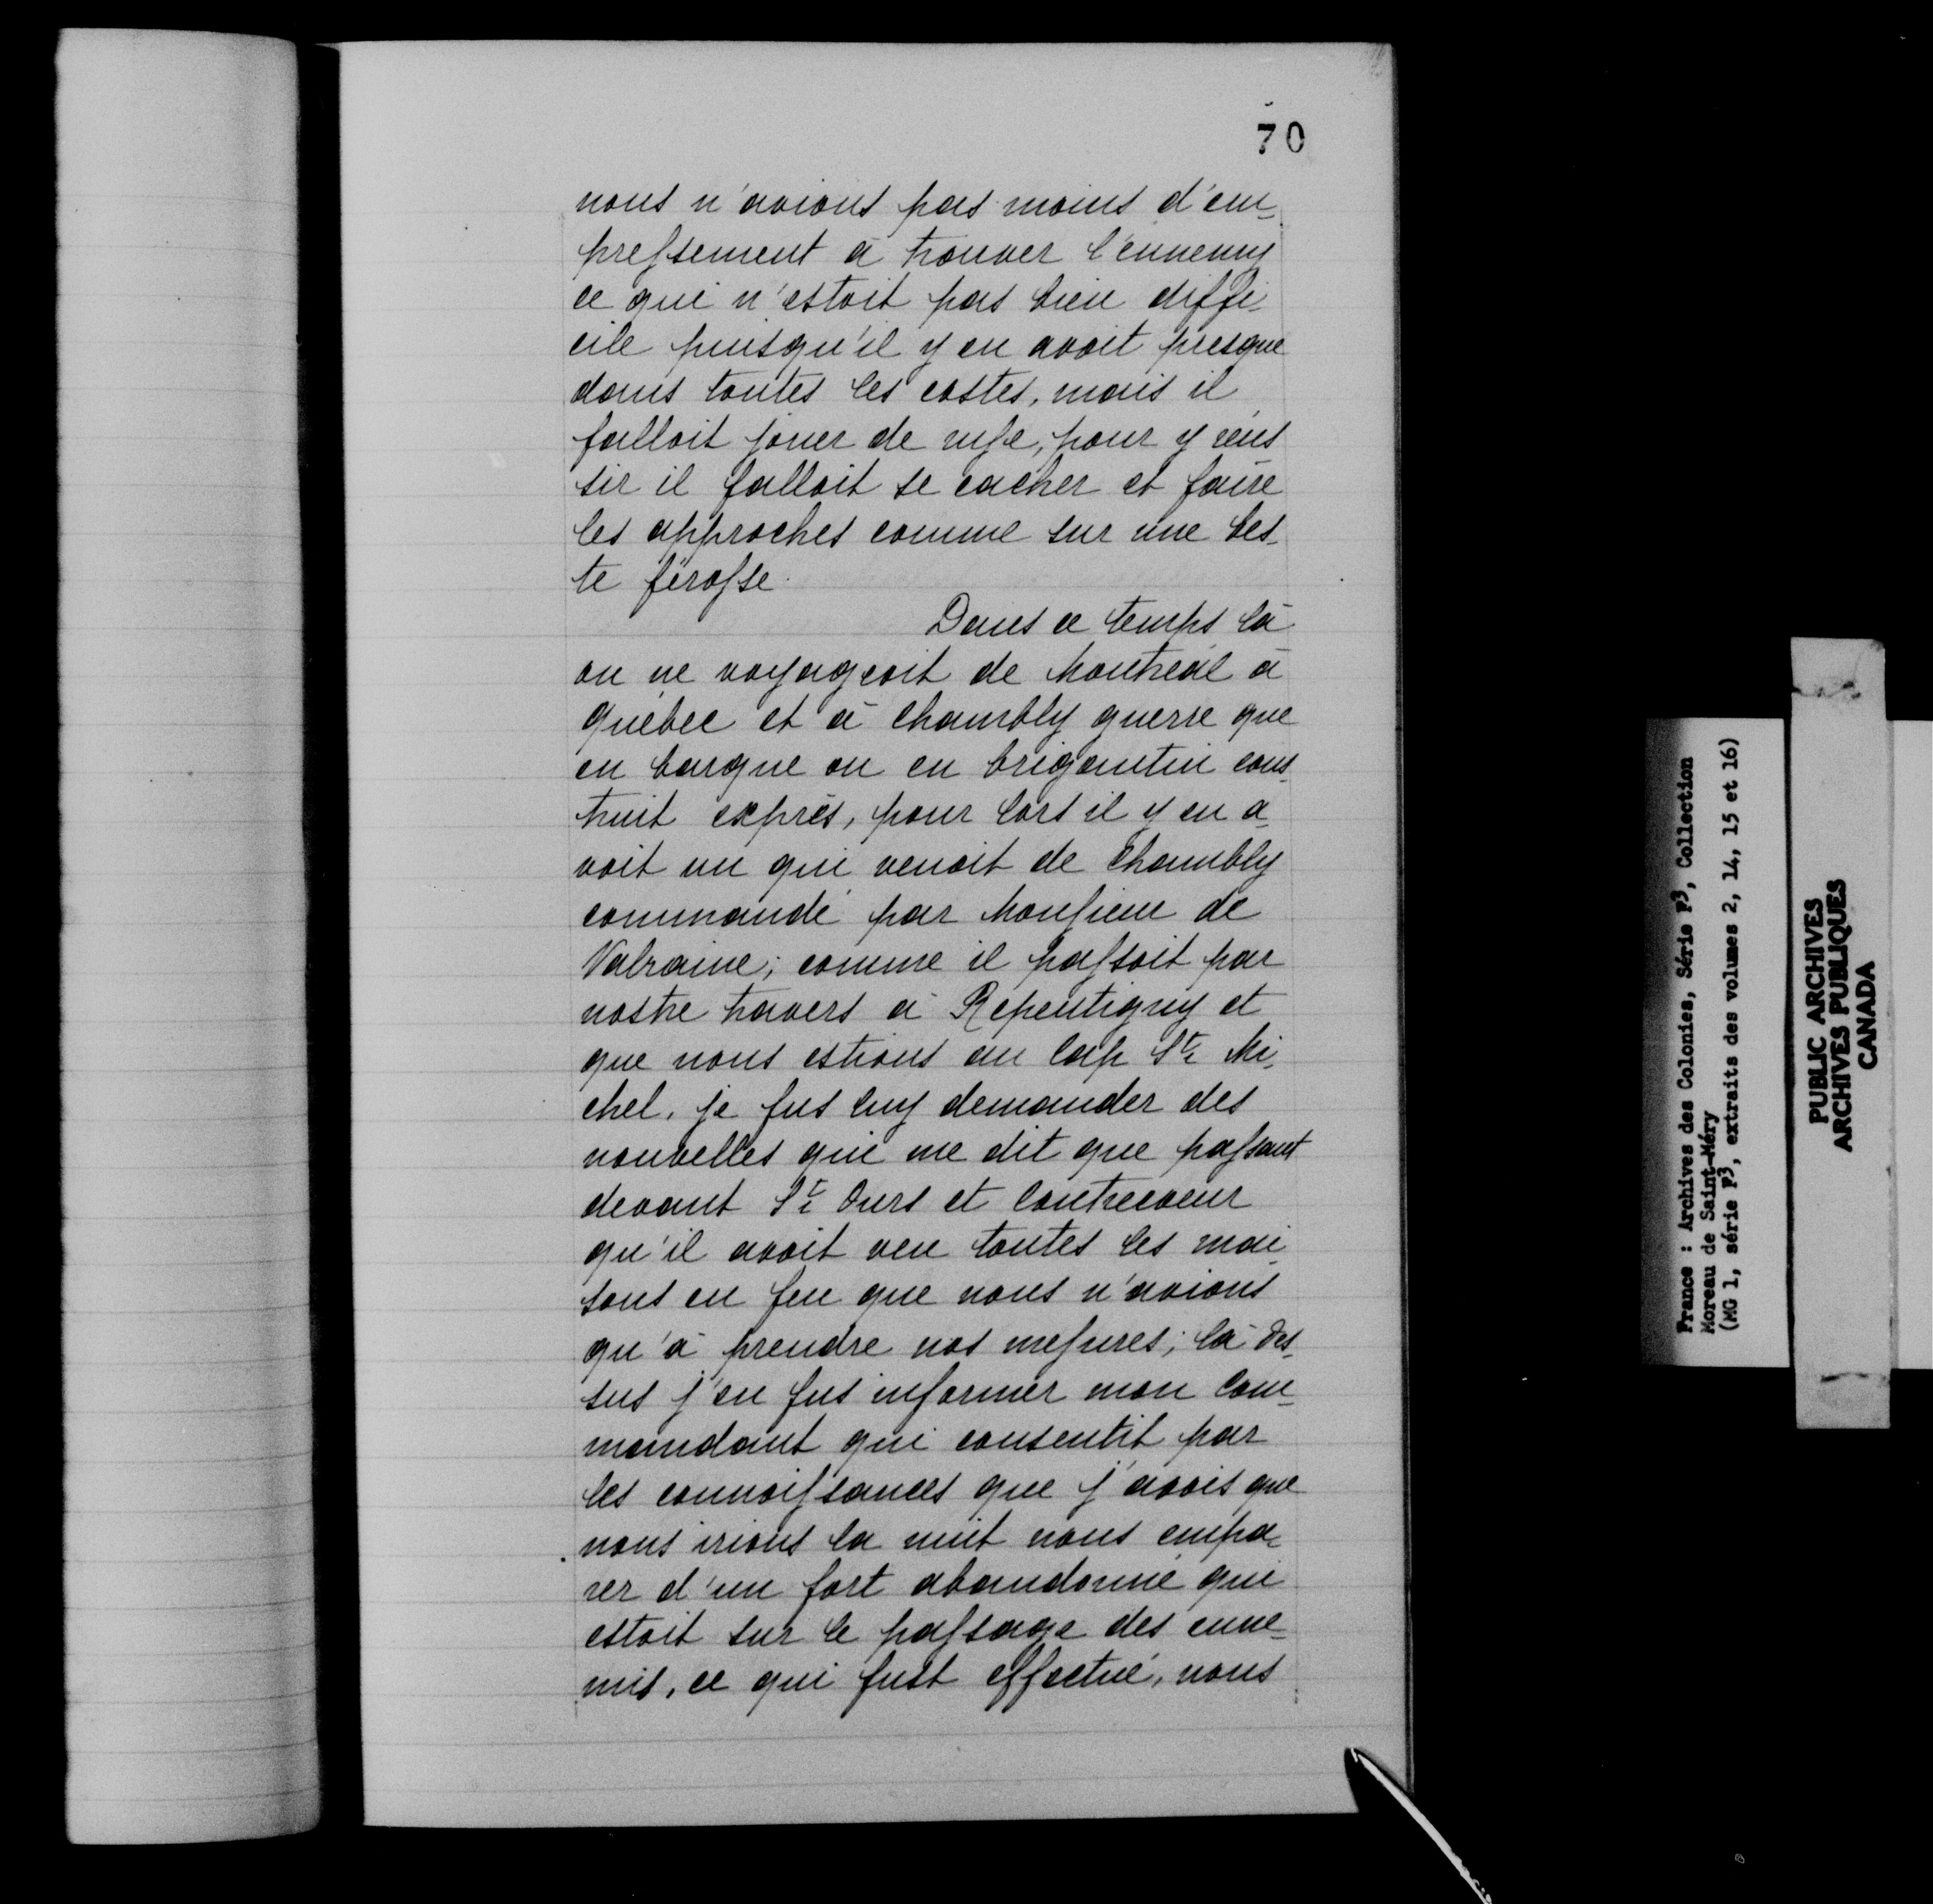 70
nous n'avions pas moins d'em-
pressement à trouver l'ennemy
ce qui n'estoit pas bien diffi-
cile puisqu'il y en avoit presque
dans toutes les costes, mais il
falloit jouer de ruse, pour y réus
sir il falloit se cacher et faire
les approches comme sur une bes-
te férosse.
Dans ce temps là
on ne voyageoit de Montréal à
Québec et à Chambly guerre que
en barque ou en brigantin cons-
truit exprès, pour lors il y en a-
voit un qui venoit de Chambly
commandé par Monsieur de
Valraine; comme il passoit par
nostre travers à Repentigny et
que nous estions au Cap St. Mi-
chel, je fus luy demander des
nouvelles qui me dit que passant
devant St. Ours et Contrecoeur
qu'il avoit veu toutes les mai-
sons en feu que nous n'avions
qu'à prendre nos mesures; là-des-
sus j'en fus informer mon com-
mandant qui consentit par
les connoissances que j'avois que
nous irions la nuit nous empa-
rer d'un fort abandonné qui
estoit sur le passage des enne-
mis, ce qui fust effectué, nous
France : Archives des Colonies, Série F3, Collection
Moreau de Saint-Méry
(MG 1, série F3, extraits des volumes 2, 14, 15 et 16)
PUBLIC ARCHIVES
ARCHIVES PUBLIQUES
CANADA